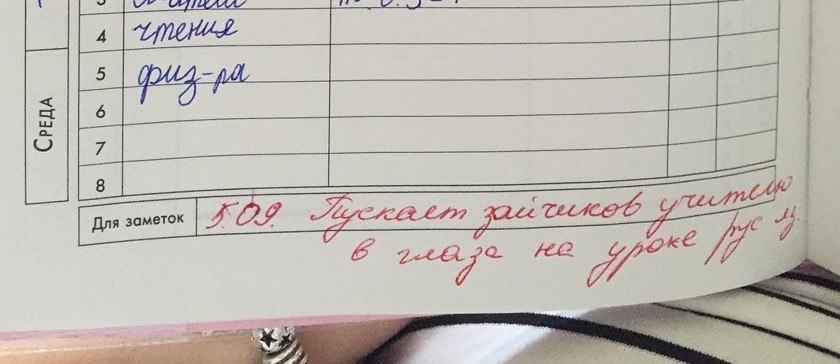 4 чтения
5 физ-ра
6
7
8
СРЕДА
Для заметок 5.09. Пускает зайчиков учителю
в глаза на уроке рус яз.